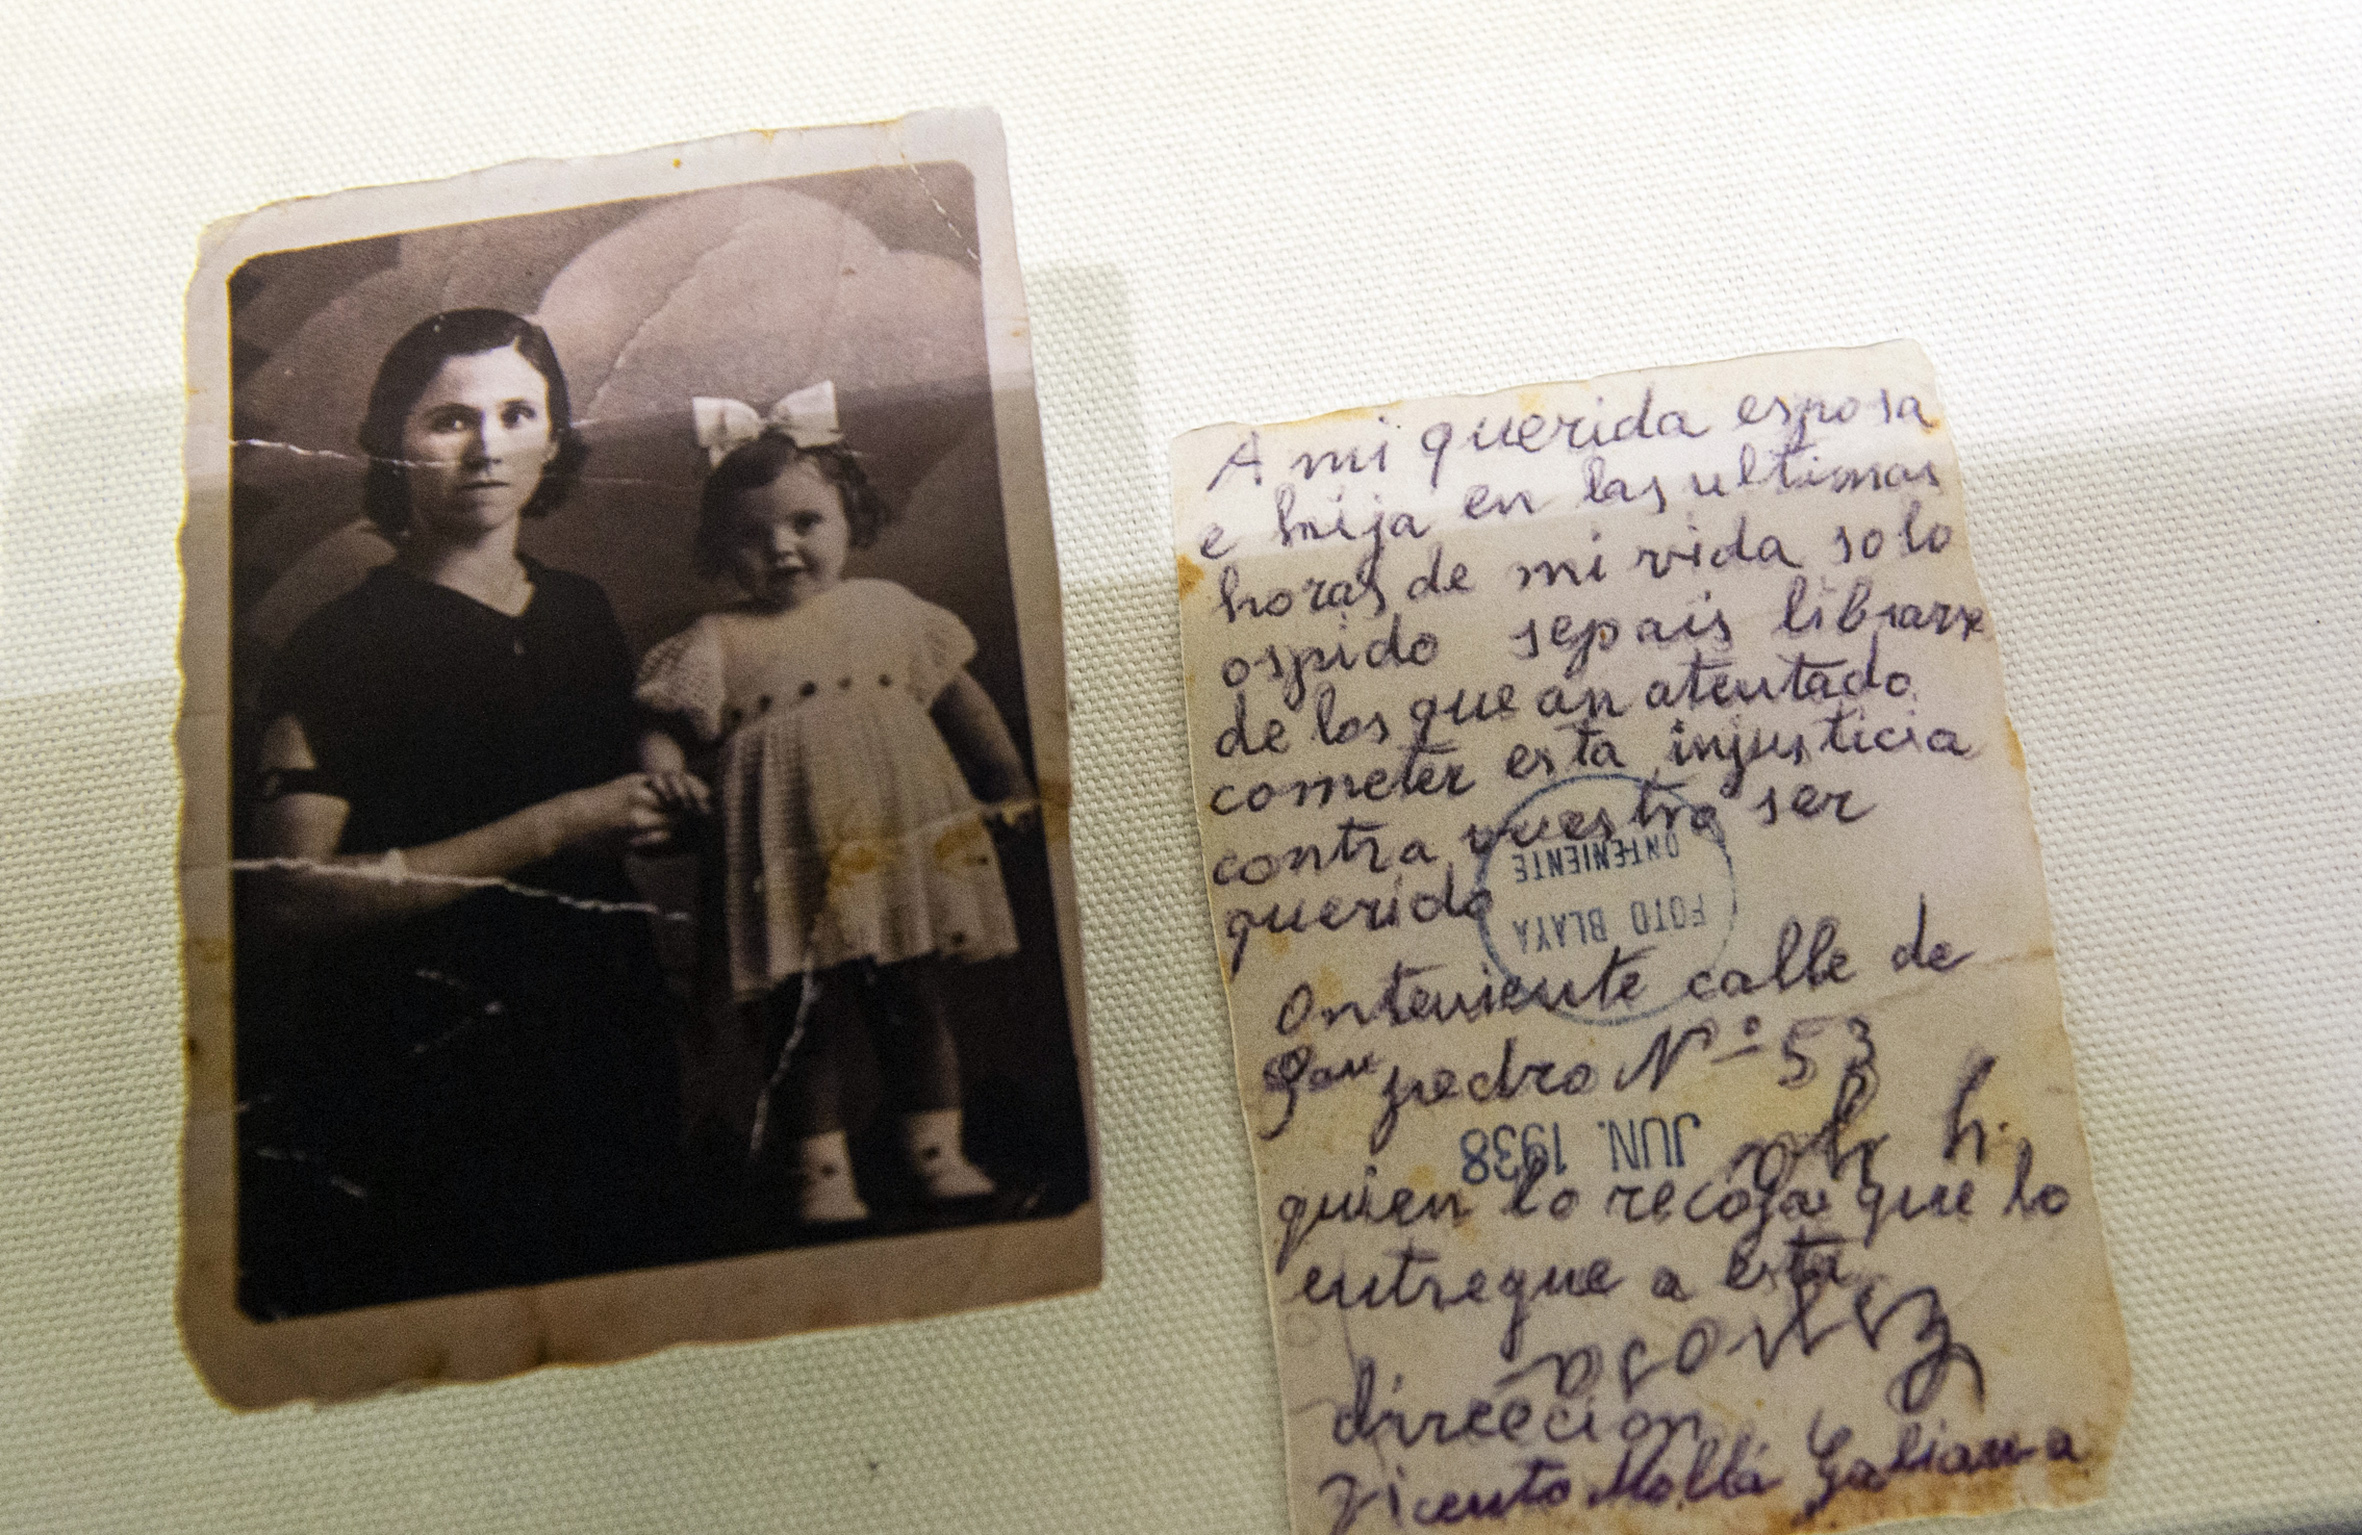 A mi querida esposa
e hija en las ultimas
horas de mi vida solo
ospido sepais librarse
de los que an atentado
cometer esta injusticia
contra vuestro ser
querido
ONTENIENTE
FOTO BLAYA
Onteniente calle de
San pedro Nº 53
JUN. 1938
quien lo recoja que lo
entregue a esta
direccion
Vicente Mollá Galiana